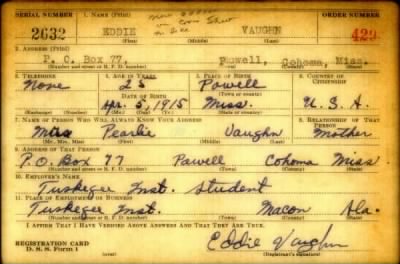 SERIAL NUMBER 1. NAME (Print) ORDER NUMBER
2632 EDDIE VAUGHN 429
(First) (Middle) (Last)
2. ADDRESS (Print)
P. O. Box 77, Powell, Cohoma, Miss.
(Number and street or R. F. D. number) (Town) (County) (State)
3. TELEPHONE 4. AGE IN YEARS 5. PLACE OF BIRTH 6. COUNTRY OF CITIZENSHIP
None 25 Powell
DATE OF BIRTH (Town or county)
Apr. 5, 1915 Miss. U. S. A.
(Mo.) (Day) (Yr.) (State or country)
7. NAME OF PERSON WHO WILL ALWAYS KNOW YOUR ADDRESS 8. RELATIONSHIP OF THAT PERSON
Miss Pearlie Vaughn Mother
(Mr., Mrs., Miss) (First) (Middle) (Last)
9. ADDRESS OF THAT PERSON
P.O. Box 77 Powell Cohoma Miss
(Number and street or R. F. D. number) (Town) (County) (State)
10. EMPLOYER'S NAME
Tuskegee Inst. Student
11. PLACE OF EMPLOYMENT OR BUSINESS
Tuskegee Inst. Macon Ala.
(Number and street or R. F. D. number) (Town) (County) (State)
I AFFIRM THAT I HAVE VERIFIED ABOVE ANSWERS AND THAT THEY ARE TRUE.
REGISTRATION CARD Eddie Vaughn
D. S. S. Form 1 (over) (Registrant's signature)